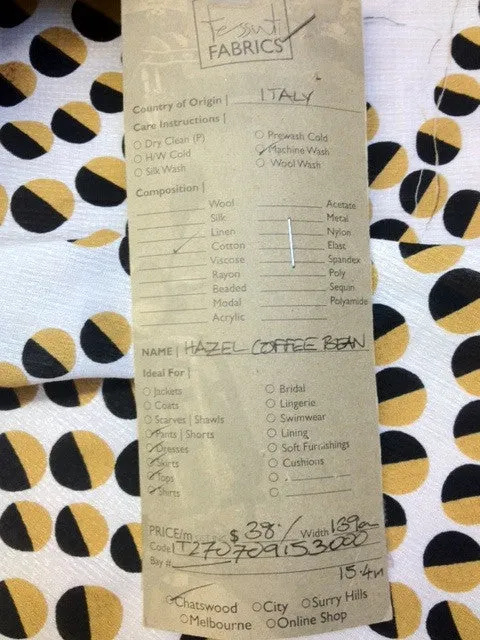 Tessuti
FABRICS
Country of Origin | ITALY
Care Instructions |
Dry Clean (P)
H/W Cold
Silk Wash
Prewash Cold
Machine Wash
Wool Wash
Composition |
Wool
Silk
Linen
Cotton
Viscose
Rayon
Beaded
Modal
Acrylic
Acetate
Metal
Nylon
Elast
Spandex
Poly
Sequin
Polyamide
NAME | HAZEL COFFEE BEAN
Ideal For |
Jackets
Coats
Scarves | Shawls
Pants | Shorts
Dresses
Skirts
Tops
Shirts
Bridal
Lingerie
Swimwear
Lining
Soft Furnishings
Cushions
PRICE/m $ 38./ Width 139cm
Code IT270709153000
Bay #
15.4m
Chatswood City Surry Hills
Melbourne Online Shop